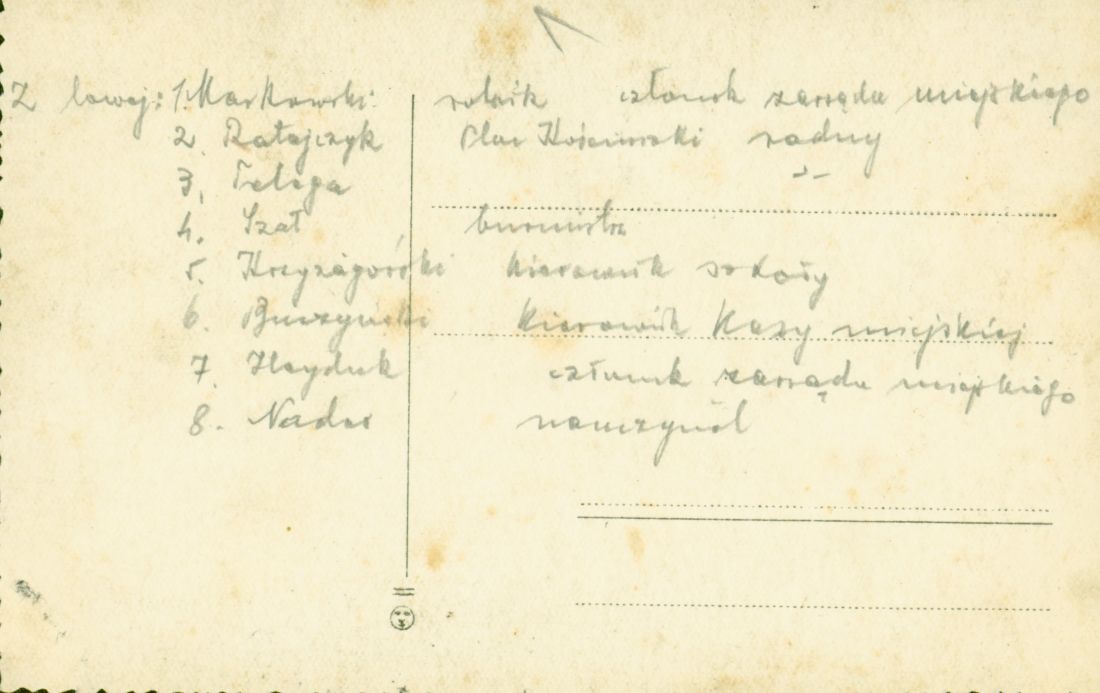 Z lewej: 1. Markowski rolnik członek zarządu miejskiego
2. Ratajczyk Plac Kościuszki radny
3. Feliga -"-
4. Szał burmistrz
5. Krzyżagórski kierownik szkoły
6. Buczyński kierownik kasy miejskiej
7. Hayduk członek zarządu miejskiego
8. nauczyciel